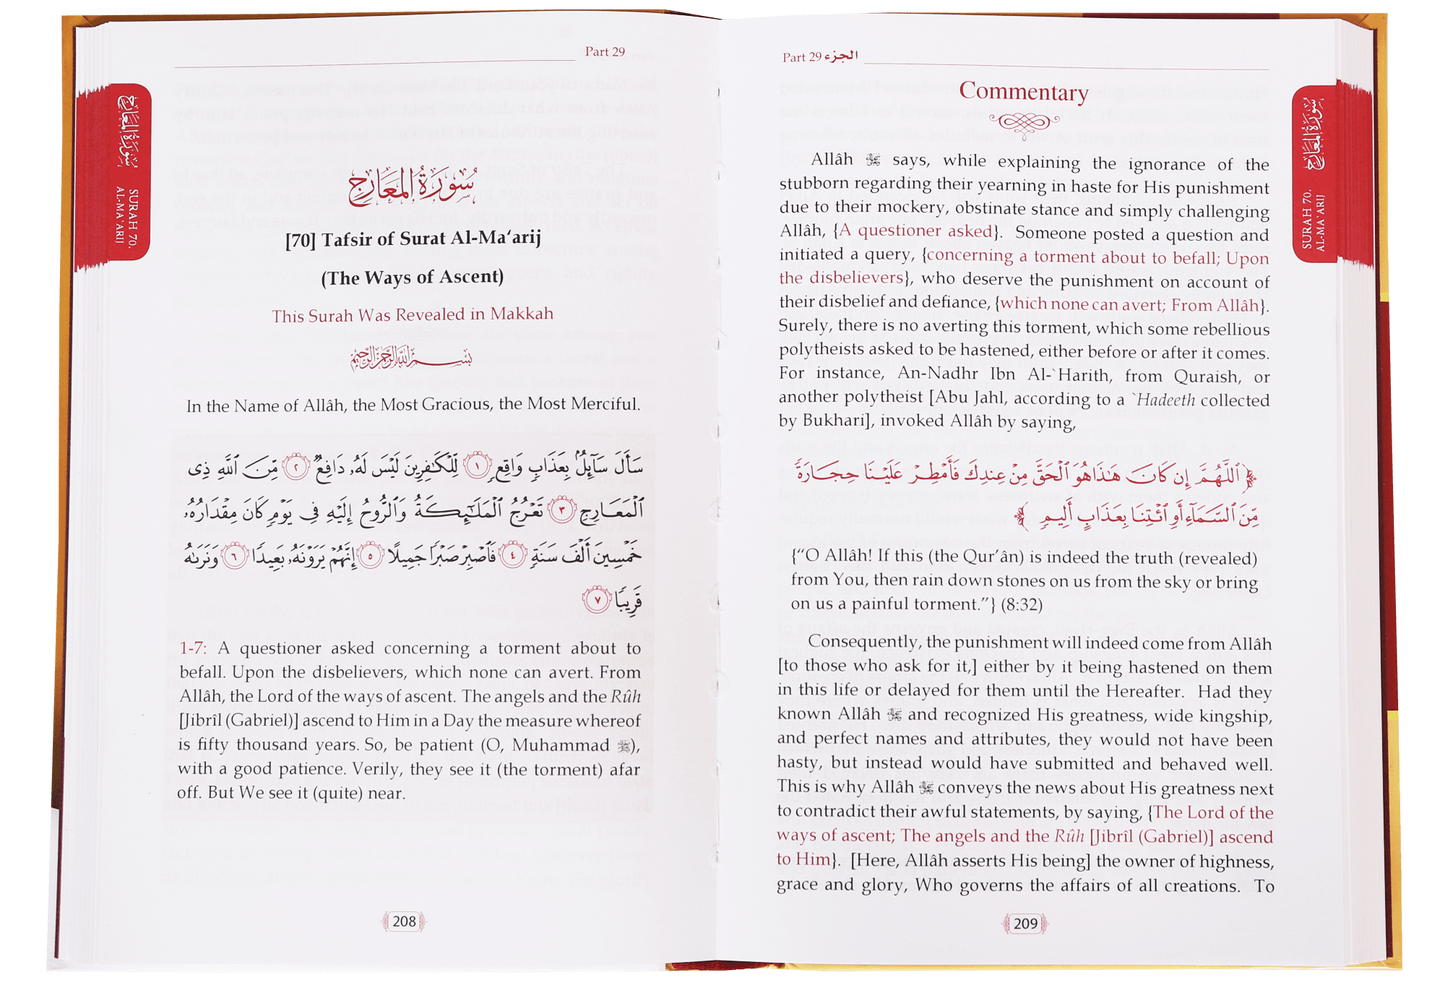 Part 29
سورة المعارج
SURAH 70.
AL-MA'ARIJ
سُورَةُ المَعَارِجِ
[70] Tafsir of Surat Al-Ma‘arij
(The Ways of Ascent)
This Surah Was Revealed in Makkah
بِسْمِ اللَّهِ الرَّحْمَنِ الرَّحِيمِ
In the Name of Allâh, the Most Gracious, the Most Merciful.
سَأَلَ سَآئِلٌۢ بِعَذَابٍ وَاقِعٍ ١ لِّلْكَٰفِرِينَ لَيْسَ لَهُۥ دَافِعٌ ٢ مِّنَ ٱللَّهِ ذِى
ٱلْمَعَارِجِ ٣ تَعْرُجُ ٱلْمَلَٰٓئِكَةُ وَٱلرُّوحُ إِلَيْهِ فِى يَوْمٍ كَانَ مِقْدَارُهُۥ
خَمْسِينَ أَلْفَ سَنَةٍ ٤ فَٱصْبِرْ صَبْرًا جَمِيلًا ٥ إِنَّهُمْ يَرَوْنَهُۥ بَعِيدًا ٦ وَنَرَىٰهُ
قَرِيبًا ٧
1-7: A questioner asked concerning a torment about to
befall. Upon the disbelievers, which none can avert. From
Allâh, the Lord of the ways of ascent. The angels and the Rûh
[Jibrîl (Gabriel)] ascend to Him in a Day the measure whereof
is fifty thousand years. So, be patient (O, Muhammad ﷺ),
with a good patience. Verily, they see it (the torment) afar
off. But We see it (quite) near.
208
Part 29 الجزء
سورة المعارج
SURAH 70.
AL-MA'ARIJ
Commentary
Allâh ﷻ says, while explaining the ignorance of the
stubborn regarding their yearning in haste for His punishment
due to their mockery, obstinate stance and simply challenging
Allâh, {A questioner asked}. Someone posted a question and
initiated a query, {concerning a torment about to befall; Upon
the disbelievers}, who deserve the punishment on account of
their disbelief and defiance, {which none can avert; From Allâh}.
Surely, there is no averting this torment, which some rebellious
polytheists asked to be hastened, either before or after it comes.
For instance, An-Nadhr Ibn Al-`Harith, from Quraish, or
another polytheist [Abu Jahl, according to a `Hadeeth collected
by Bukhari], invoked Allâh by saying,
﴿ٱللَّهُمَّ إِن كَانَ هَٰذَا هُوَ ٱلْحَقَّ مِنْ عِندِكَ فَأَمْطِرْ عَلَيْنَا حِجَارَةً
مِّنَ ٱلسَّمَآءِ أَوِ ٱئْتِنَا بِعَذَابٍ أَلِيمٍ﴾
{“O Allâh! If this (the Qur’ân) is indeed the truth (revealed)
from You, then rain down stones on us from the sky or bring
on us a painful torment.”} (8:32)
Consequently, the punishment will indeed come from Allâh
[to those who ask for it,] either by it being hastened on them
in this life or delayed for them until the Hereafter. Had they
known Allâh ﷻ and recognized His greatness, wide kingship,
and perfect names and attributes, they would not have been
hasty, but instead would have submitted and behaved well.
This is why Allâh ﷻ conveys the news about His greatness next
to contradict their awful statements, by saying, {The Lord of the
ways of ascent; The angels and the Rûh [Jibrîl (Gabriel)] ascend
to Him}. [Here, Allâh asserts His being] the owner of highness,
grace and glory, Who governs the affairs of all creations. To
209